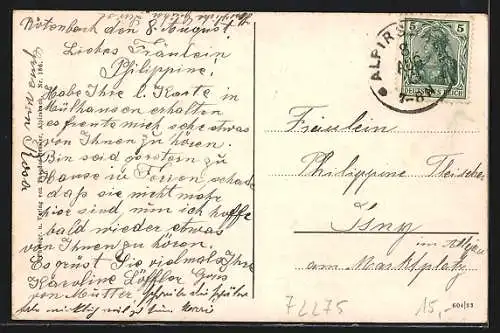 Rötenbach den 8. August.
Liebes Fräulein
Philippine.
Habe Ihre l. Karte in
Mülhausen erhalten
es freute mich sehr etwas
von Ihnen zu hören.
Bin seid gestern zu
Hause in Ferien, schade
daß sie nicht mehr
hier sind, nun ich hoffe
bald wieder etwas
von Ihnen zu hören.
Es grüst Sie vielmals Ihre
Karoline Löffler Grus
von Mutter
ALPIRSB
5 5
DEUTSCHES REICH
7-8
Fräulein
Philippine Fleischer
Isny
im Allgäu
am Marktplatz
72275
15,-
604/13